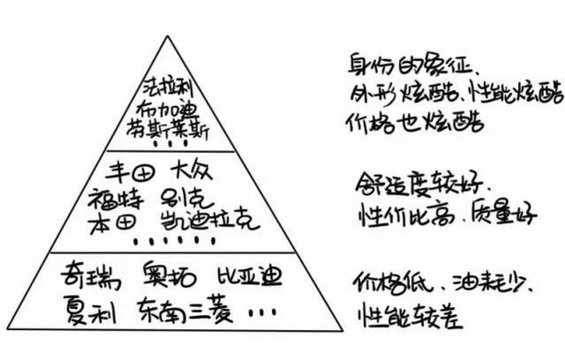 法拉利
布加迪
劳斯莱斯
...
身份的象征、
外形炫酷、性能炫酷
价格也炫酷
丰田 大众
福特 别克
本田 凯迪拉克
......
舒适度较好、
性价比高、质量好
奇瑞 奥拓 比亚迪
夏利 东南三菱 ...
价格低、油耗少、
性能较差